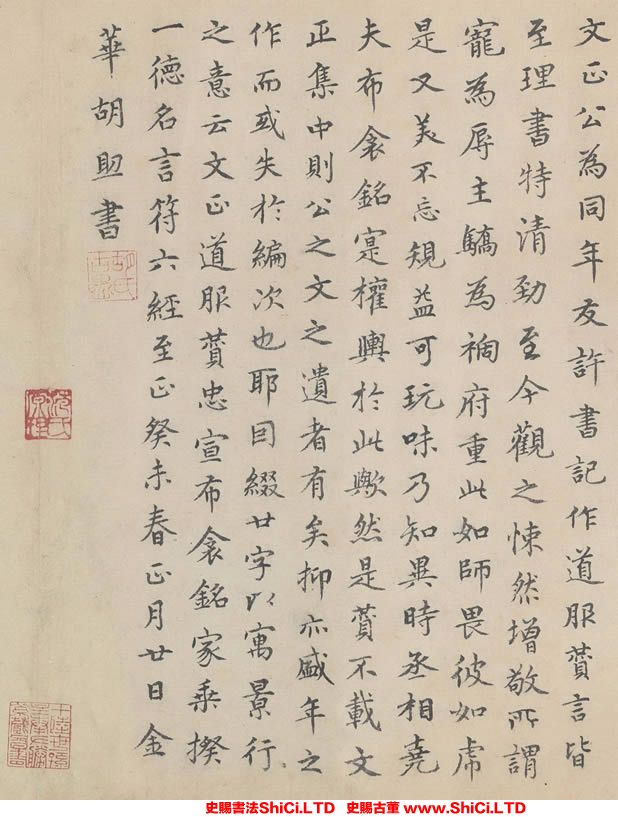 文正公為同年友許書記作道服賛言皆
至理書特清勁至今觀之悚然增敬所謂
寵為辱主驕為禍府重此如師畏彼如虎
是又美不忘規益可玩味乃知異時丞相堯
夫布衾銘寔權輿於此歟然是賛不載文
正集中則公之文之遺者有矣抑亦盛年之
作而或失於編次也耶因綴廿字以寓景行
之意云文正道服賛忠宣布衾銘家乘揆
一德名言符六經至正癸未春正月廿日金
華胡助書
史賜書法ShiCi.LTD 史賜古董 www.ShiCi.LTD